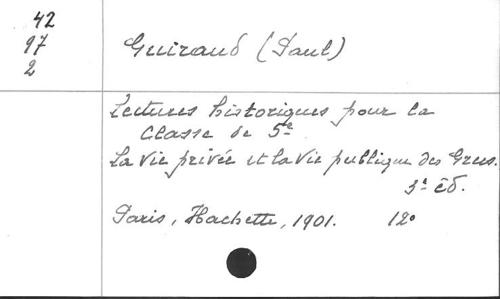 42
97
2
Guiraud (Paul)
Lectures historiques pour la
Classe de 5e
La Vie privée et la Vie publique des Grecs.
3e éd.
Paris, Hachette, 1901. 12°